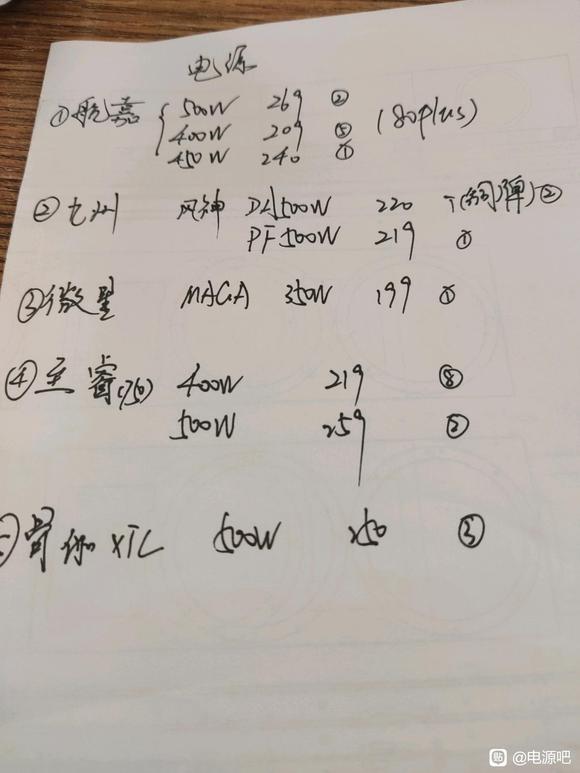 电源
①航嘉 500W 269 ②
400W 209 ⑤ (80plus)
450W 240 ①
②九州 风神 DA500W 220 ②
PF500W 219 ①
③微星 MAGA 350W 199 ①
④ 400W 219 ⑧
500W 259 ②
XTC 500W 250 ③
贴 @电源吧